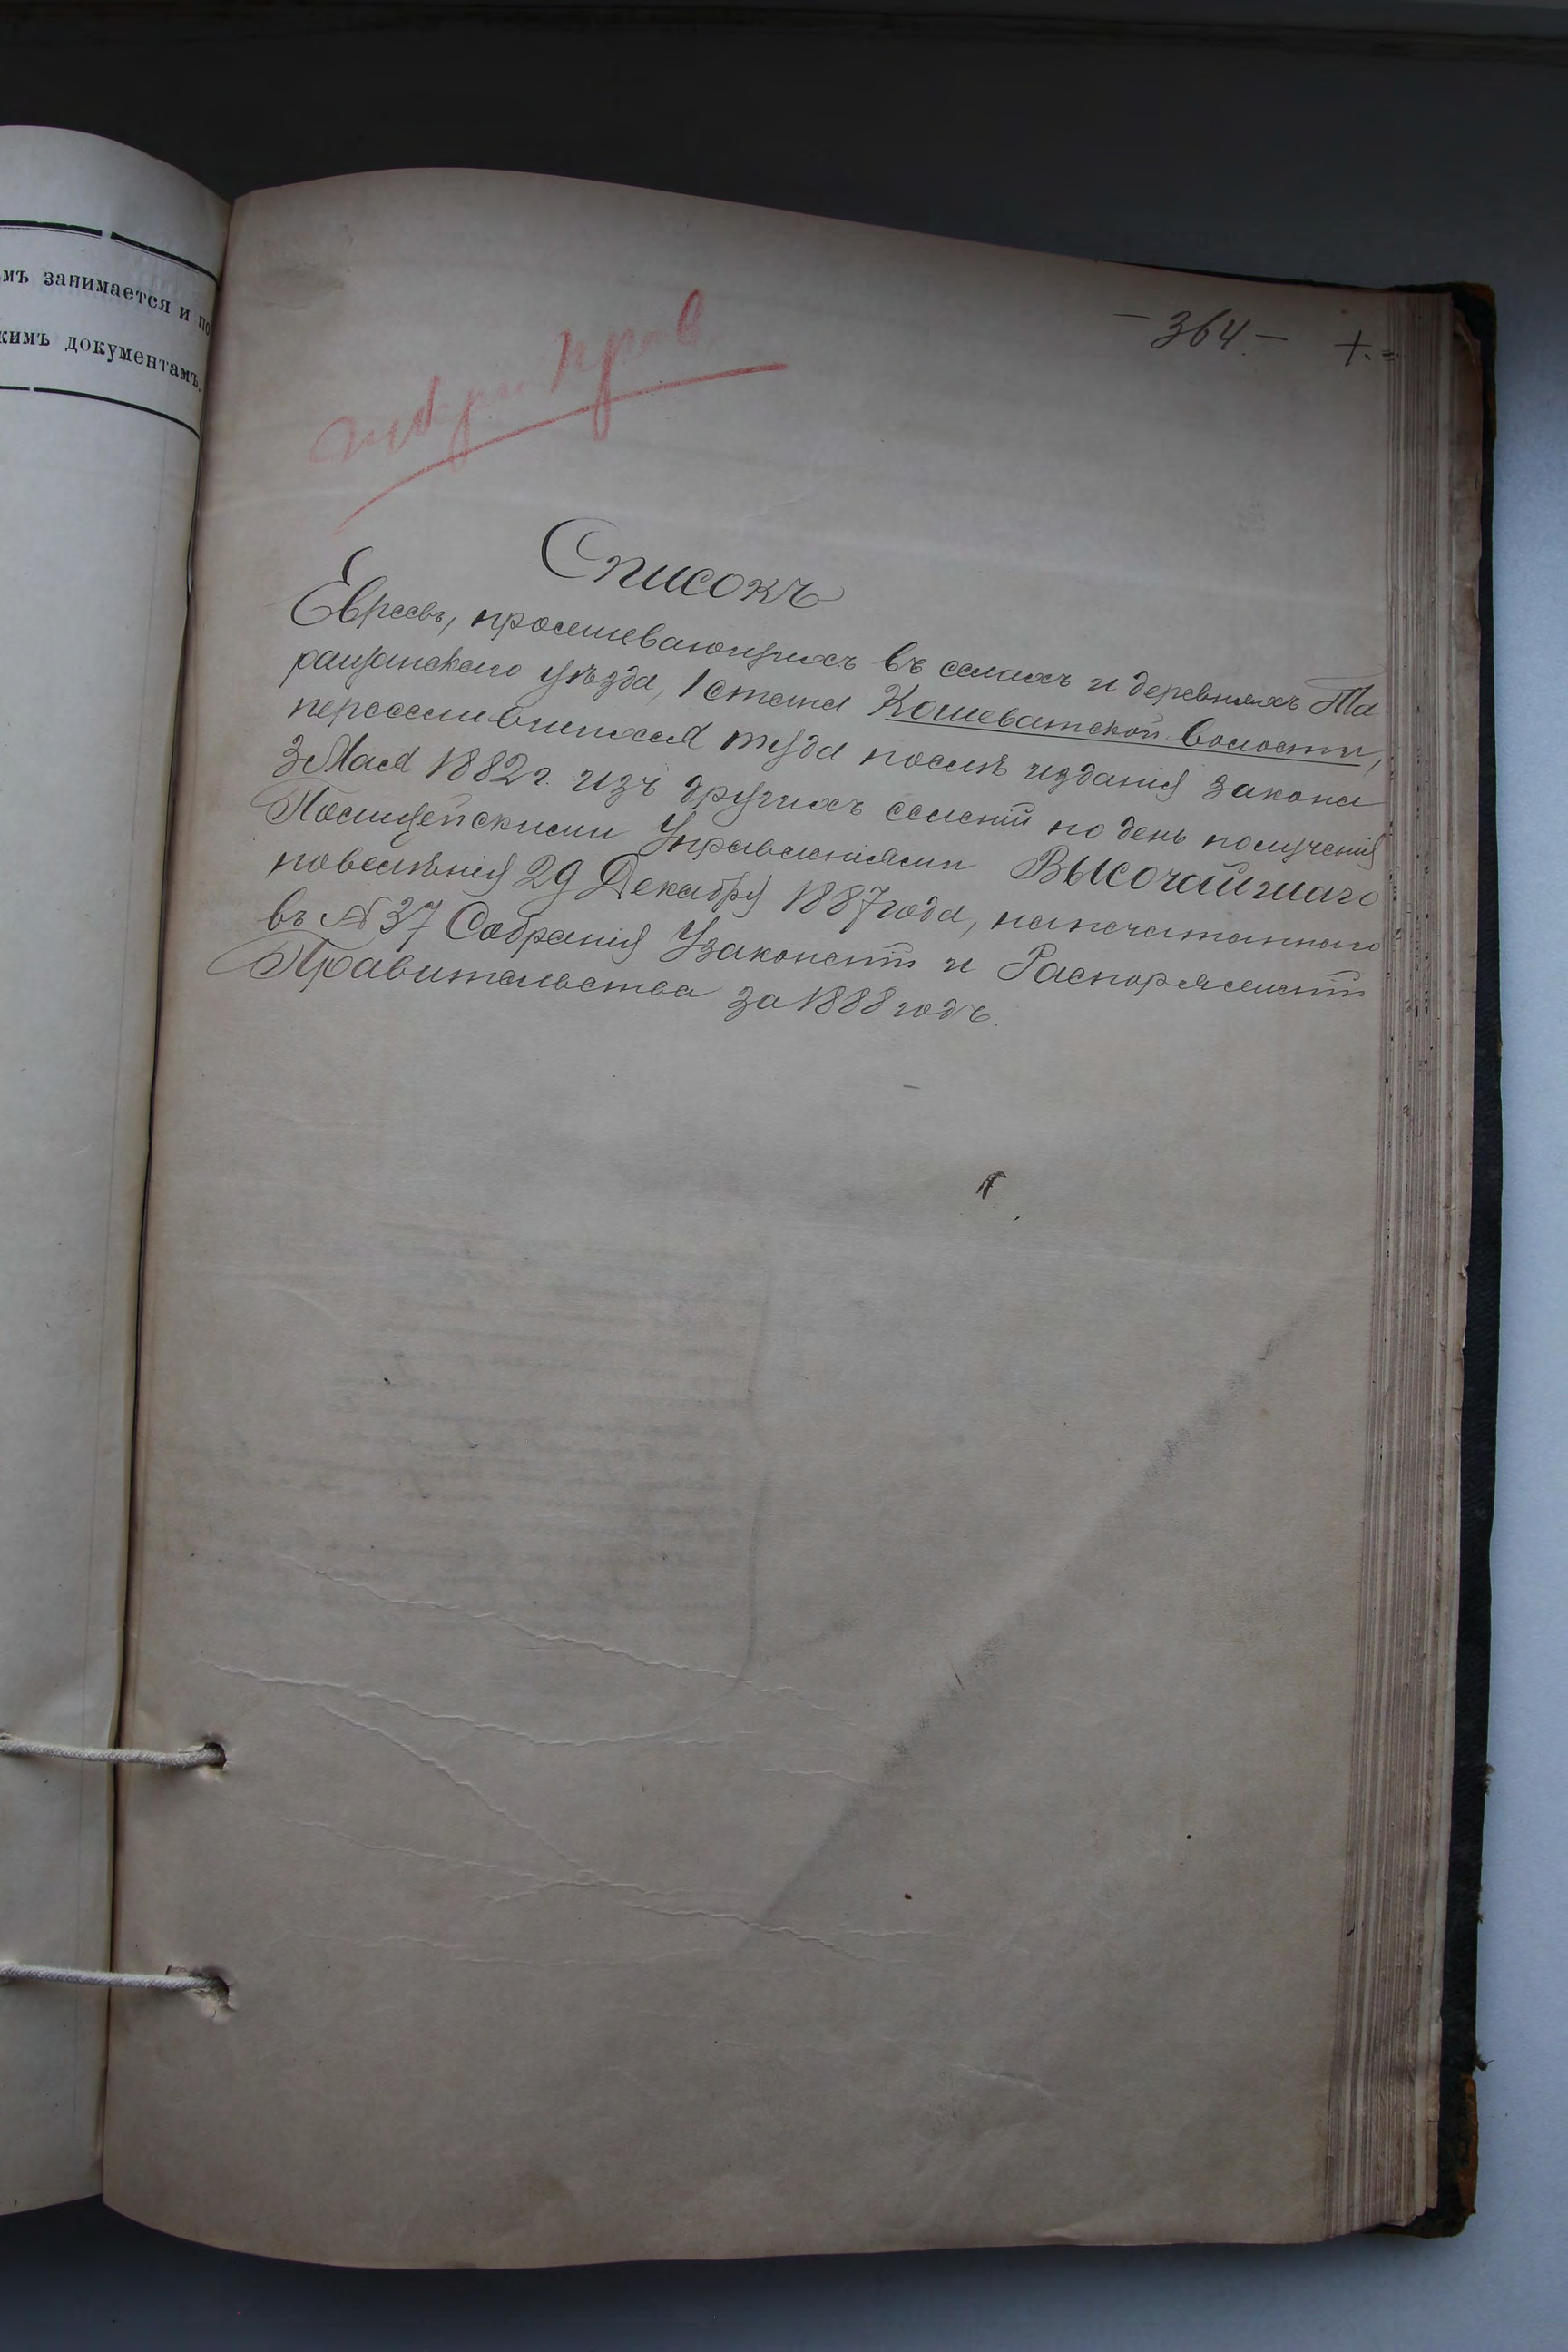 мъ занимается и по
кимъ документамъ.
- 364. - +.=
Списокъ
Евреевъ, проживающихъ въ селахъ и деревняхъ Та
ращанскаго уѣзда, 1 стана Кошеватской волости,
переселившихся туда послѣ изданія закона
3 Мая 1882 г. изъ другихъ селеній по день полученія
Полицейскими Управленіями ВЫСОЧАЙшаго
повелѣнія 29 Декабря 1887 года, напечатаннаго
въ № 37 Собранія Узаконеній и Распоряженій
Правительства за 1888 годъ.